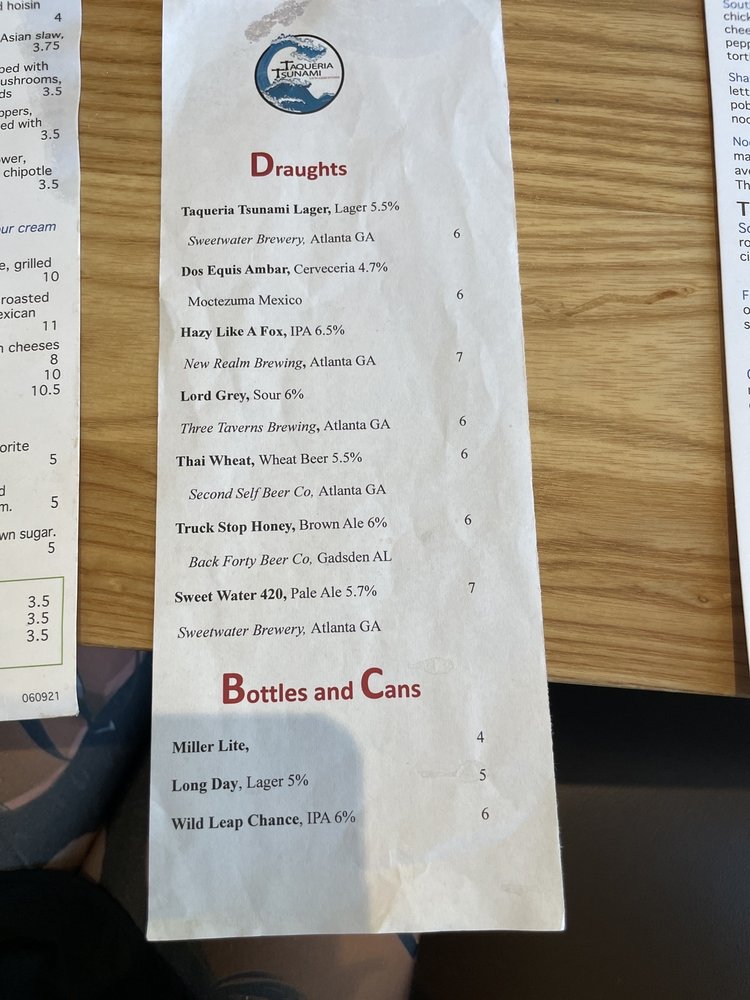 d hoisin
4
Asian slaw,
3.75
ped with
ushrooms,
ds 3.5
ppers,
ed with
3.5
ower,
chipotle
3.5
ur cream
e, grilled
10
roasted
exican
11
n cheeses
8
10
10.5
orite
5
d
m. 5
wn sugar.
5
3.5
3.5
3.5
060921
TAQUERIA
TSUNAMI
Draughts
Taqueria Tsunami Lager, Lager 5.5%
Sweetwater Brewery, Atlanta GA 6
Dos Equis Ambar, Cerveceria 4.7%
Moctezuma Mexico 6
Hazy Like A Fox, IPA 6.5%
New Realm Brewing, Atlanta GA 7
Lord Grey, Sour 6%
Three Taverns Brewing, Atlanta GA 6
Thai Wheat, Wheat Beer 5.5% 6
Second Self Beer Co, Atlanta GA
Truck Stop Honey, Brown Ale 6% 6
Back Forty Beer Co, Gadsden AL
Sweet Water 420, Pale Ale 5.7% 7
Sweetwater Brewery, Atlanta GA
Bottles and Cans
Miller Lite, 4
Long Day, Lager 5% 5
Wild Leap Chance, IPA 6% 6
Sout
chick
chee
pepp
tort
Sha
lett
pob
noo
Noo
ma
avo
Th
T
So
ro
ci
F
o
s